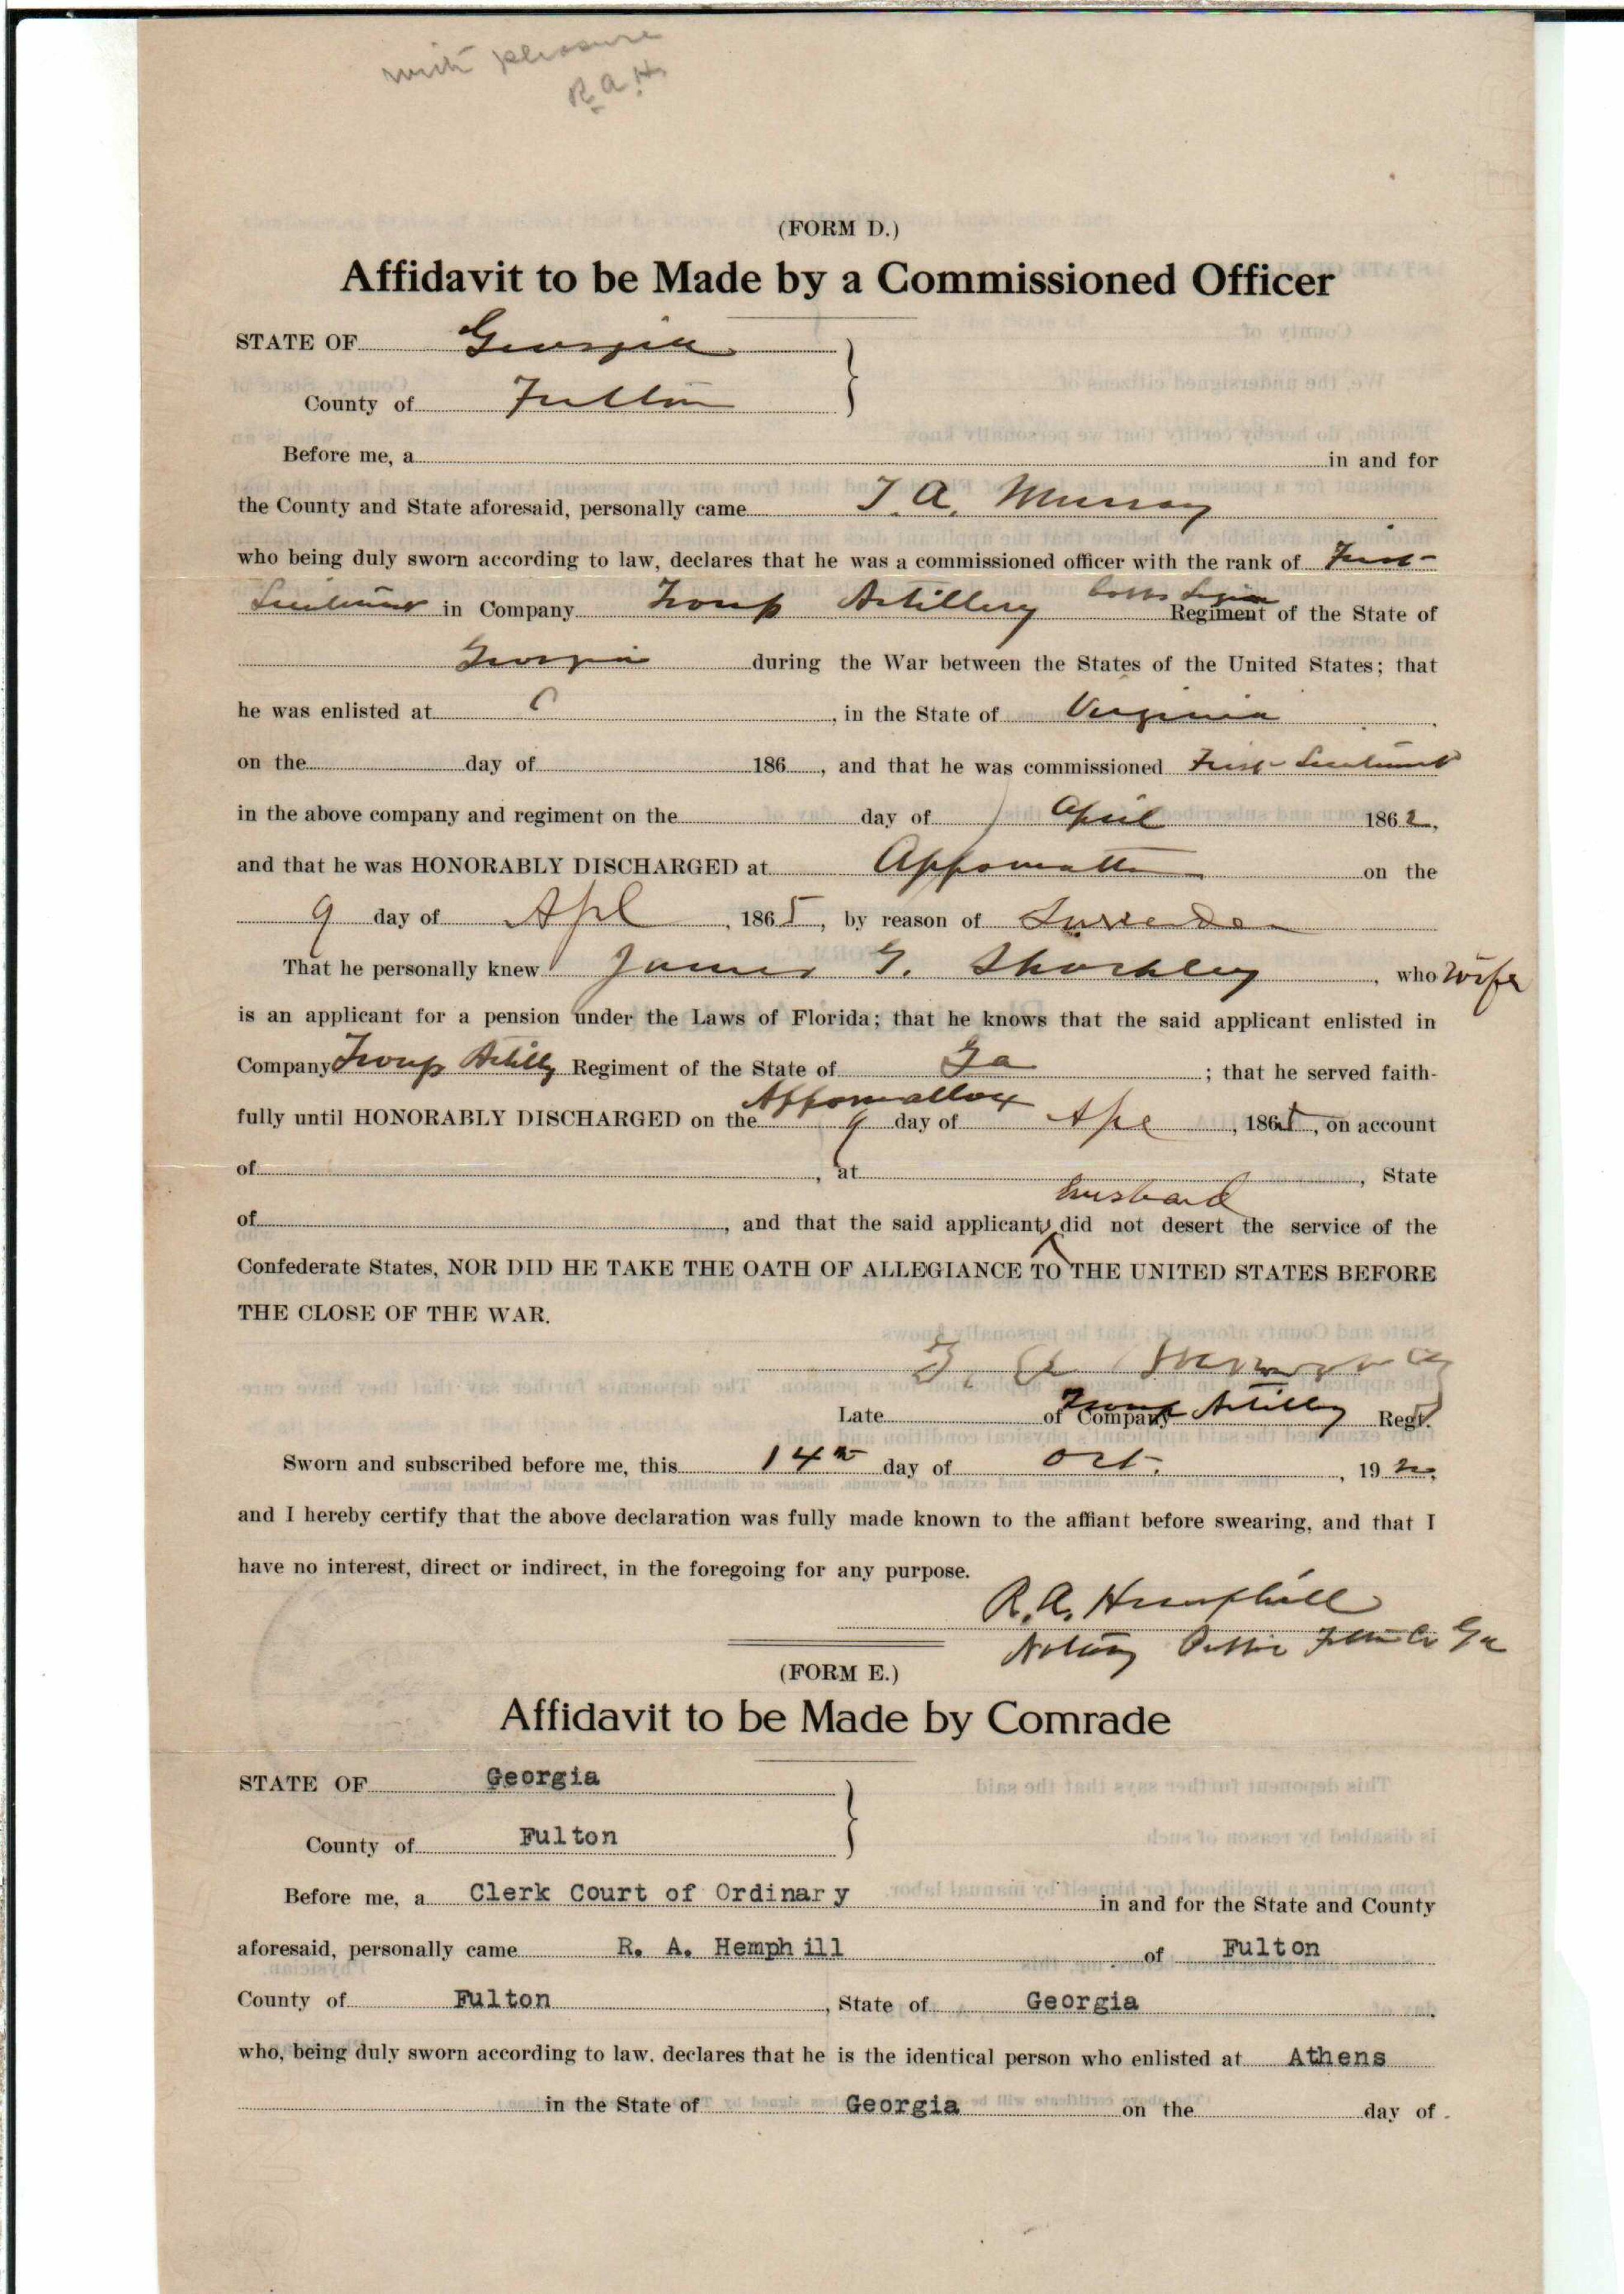 with pleasure
R. A. H.
(FORM D.)
Affidavit to be Made by a Commissioned Officer
STATE OF Georgia
County of Fulton
Before me, a in and for
the County and State aforesaid, personally came T. A. Murray
who being duly sworn according to law, declares that he was a commissioned officer with the rank of First-
Lieutenant in Company Troup Artillery Cobbs Legion Regiment of the State of
Georgia during the War between the States of the United States; that
he was enlisted at , in the State of Virginia
on the day of 186 , and that he was commissioned First-Lieutenant
in the above company and regiment on the day of April 1862,
and that he was HONORABLY DISCHARGED at Appomattox on the
9 day of Apl , 1865, by reason of Surrender
That he personally knew James T. Shockley , who Wife
is an applicant for a pension under the Laws of Florida; that he knows that the said applicant enlisted in
Company Troup Artilly Regiment of the State of Ga ; that he served faith-
Appomattox
fully until HONORABLY DISCHARGED on the 9 day of Apl , 1865, on account
of , at , State
husband
of , and that the said applicant did not desert the service of the
Confederate States, NOR DID HE TAKE THE OATH OF ALLEGIANCE TO THE UNITED STATES BEFORE
THE CLOSE OF THE WAR.
T. A. Murray
Late of Company Troup Artillery Regt.
Sworn and subscribed before me, this 14th day of Oct. , 19
and I hereby certify that the above declaration was fully made known to the affiant before swearing, and that I
have no interest, direct or indirect, in the foregoing for any purpose.
R. A. Hemphill
Notary Public Fulton Co Ga
(FORM E.)
Affidavit to be Made by Comrade
STATE OF Georgia
County of Fulton
Before me, a Clerk Court of Ordinary in and for the State and County
aforesaid, personally came R. A. Hemphill of Fulton
County of Fulton , State of Georgia
who, being duly sworn according to law, declares that he is the identical person who enlisted at Athens
in the State of Georgia on the day of